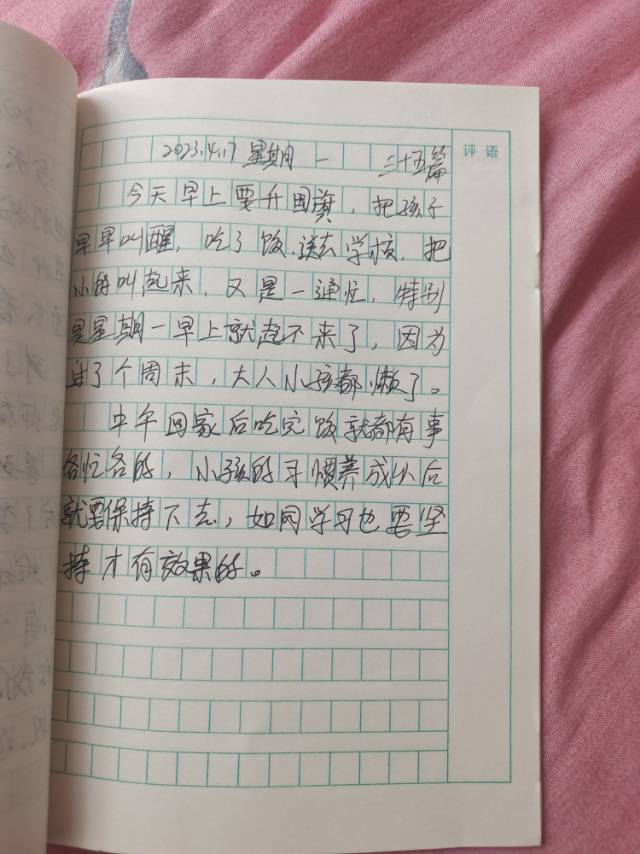 2023.4.17 星期一 三十五篇
评语
今天早上要升国旗，把孩子
早早叫醒，吃了饭，送去学校，把
小的叫起来，又是一通忙，特别
是星期一早上就起不来了，因为
过了个周末，大人小孩都懒了。
中午回家后吃完饭就都有事
各忙各的，小孩的习惯养成以后
就要保持下去，如同学习也要坚
持才有效果的。